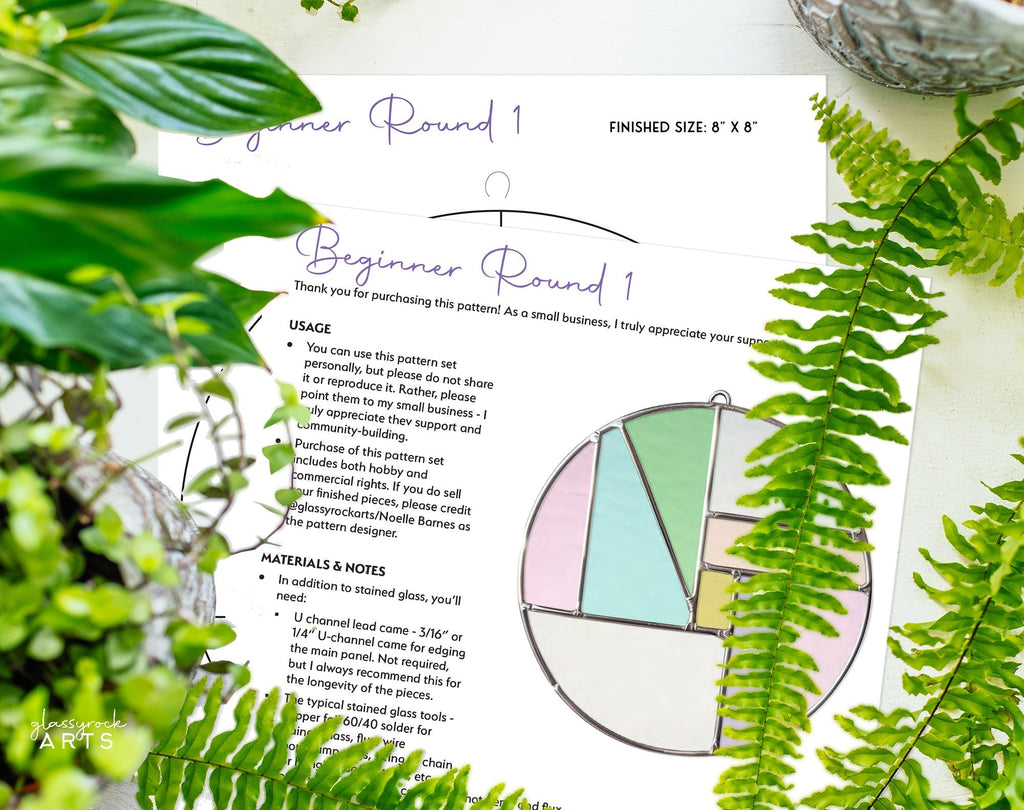 Beginner Round 1
FINISHED SIZE: 8" X 8"
Beginner Round 1
Thank you for purchasing this pattern! As a small business, I truly appreciate your
USAGE
• You can use this pattern set
personally, but please do not share
it or reproduce it. Rather, please
point them to my small business - I
uly appreciate thev support and
community-building.
• Purchase of this pattern set
includes both hobby and
commercial rights. If you do sell
our finished pieces, please credit
@glassyrockarts/Noelle Barnes as
the pattern designer.
MATERIALS & NOTES
• In addition to stained glass, you'll
need:
▪ U channel lead came - 3/16" or
1/4" U-channel came for edging
the main panel. Not required,
but I always recommend this for
the longevity of the pieces.
The typical stained glass tools -
60/40 solder for
wire
chain
etc
glassyrock
ARTS